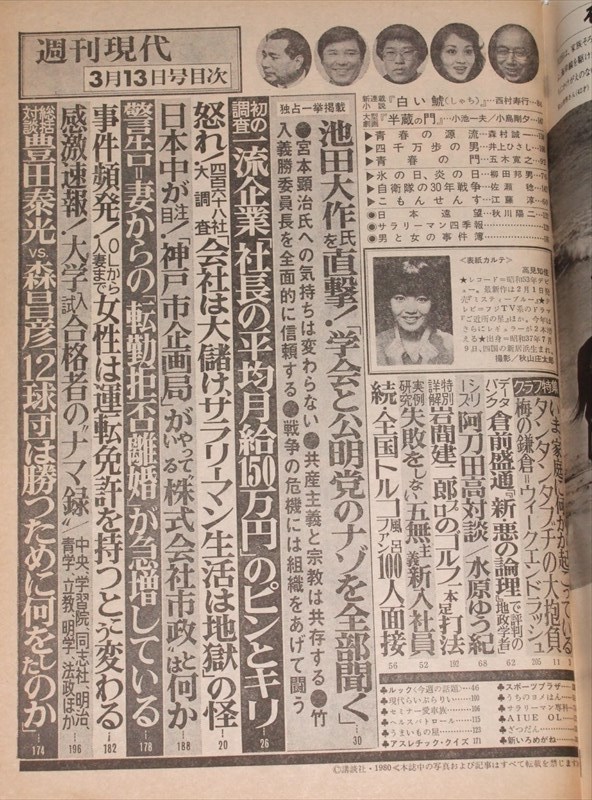 週刊現代
3月13日号目次
新連載小説『白い鯱(しゃち)』…西村寿行…
大型劇画『半蔵の門』…小池一夫／小島剛夕…
▶青春の源流……森村誠一…
▶四千万歩の男…井上ひさし…
▶青春の門……五木寛之…
▶氷の日、炎の日…柳田邦男…
▶自衛隊の30年戦争…佐瀬稔…
▶こもんせんす…江藤淳…
●日本遠望…秋川陽二…
●サラリーマン四季報……
●男と女の事件簿……
独占一挙掲載
池田大作氏を直撃!「学会と公明党のナゾを全部聞く」
●宮本顕治氏への気持ちは変わらない●共産主義と宗教は共存する●竹
入義勝委員長を全面的に信頼する●戦争の危機には組織をあげて闘う
30
初の調査 一流企業「社長の平均月給150万円」のピンとキリ
26
怒れ!四百六十八社大調査「会社は大儲け、サラリーマン生活は地獄」の怪
20
日本中が注目!「神戸市企画局」がやっている“株式会社市政”とは何か
188
警告=妻からの「転勤拒否離婚」が急増している
178
事件頻発!OLから人妻まで女性は運転免許を持つとこう変わる
182
感激速報!大学入試合格者の“ナマ録”中央、学習院、同志社、明治、青学、立教、明学、法政ほか
196
総括対談 豊田泰光VS.森昌彦「12球団は勝つために何をしたのか」
174
<表紙カルテ>
高見知佳
★レコード=昭和53年デビュー。
撮影／秋山庄太郎
グラフ特集
いま家庭に何かが起こっている
タンタンタブチの大抱負
11
梅の鎌倉=ウィークエンドラッシュ
205
データバンク 倉前盛通『新・悪の論理』で評判の地政学者
62
シリーズ 阿刀田高対談／水原ゆう紀
68
特別詳解 岩間建二郎プロのゴルフ「一本足打法」
192
実例研究 失敗をしない五無主義新入社員
52
続・全国トルコ風呂ファン100人面接
56
♣ルック〈今週の話題〉…46
♣現代らいぶらりい…106
♣セミナー愛車族…
♣ヘルスパトロール…115
♣うまいもの屋…
♣アスレチック・クイズ 171
♣スポーツプラザ…
♣うちのヨメはん…
♣サラリーマン専科…
♣AIUE OL…
♣ざつだん…
♣新いろめがね…
©講談社・1980＜本誌中の写真および記事はすべて転載を禁じます